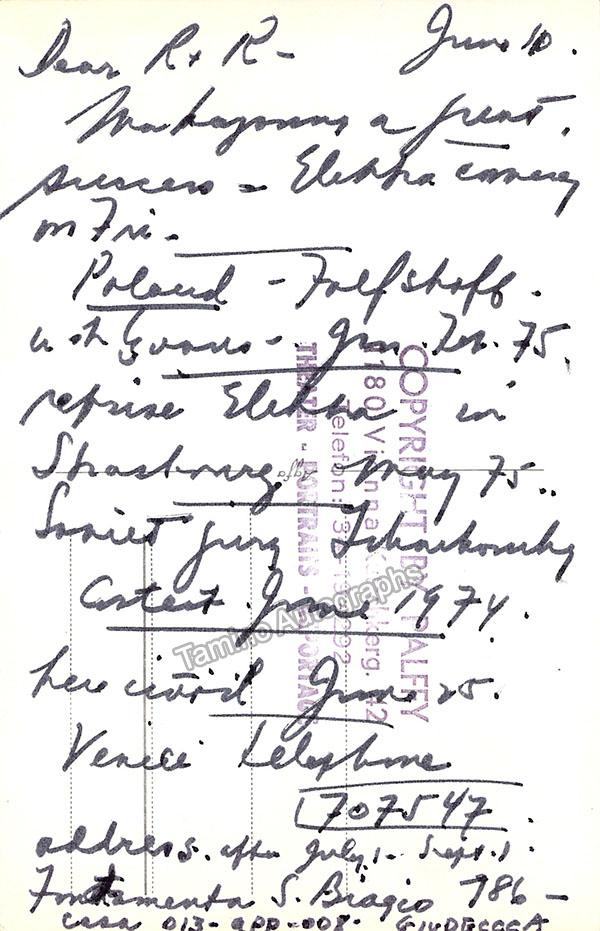 June 10.
Dear R + R -
Mahagonny a great
success - Elektra coming
on Fri -
Poland - Falfstaff.
with Evans - Jan. Feb. 75.
reprise Elektra in
Strasbourg May 75.
Soviet jury Tchaikovsky
Contest June 1974.
here until June 25.
Venice telephone
707547
address. after July 1 - Sept. 1.
Fontamenta S. Biagio 786 -
casa 013 - app - 008 - GIUDECCCA
COPYRIGHT BY PALFFY
1180 Vienna
Telefon: 3
THEATER - PORTRAITS - REPORTAGE
Tamino Autographs